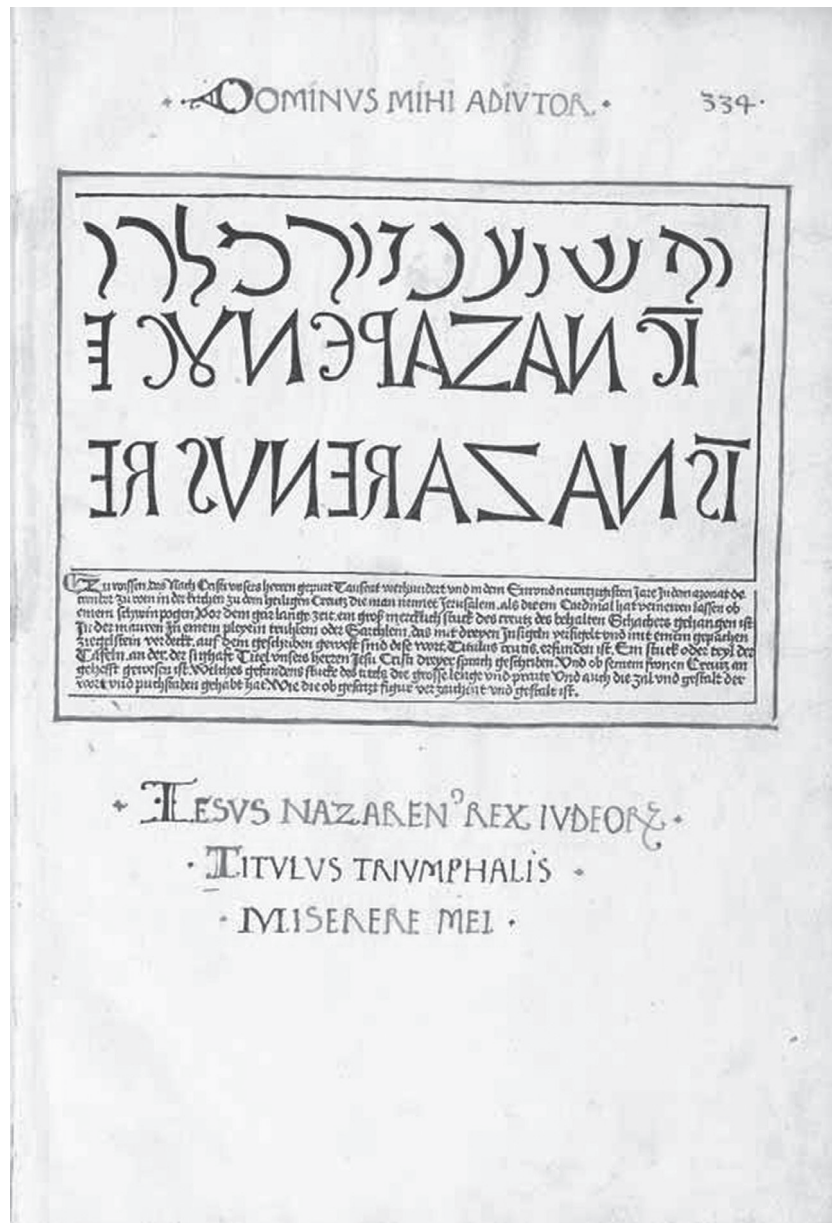 DOMINVS MIHI ADIVTOR 334
I̅C̅ NAZAPENȢC E
I̅S̅ NAZARENVS RE
Zu wissen das Nach Cristi vnsers herren gepurt Tausent vierhundert vnd in dem neuntzigisten Jare In dem monat
zu rom in der kirchen zu dem heiligen Creutz die man nennet Jerusalem. als die ein Cardinal hat verneuen lassen ob
einem schwinpogen Vor dem gar lange zeit. ein groß mercklich stuck des creutz des behalten Schachers gehangen ist
In der mauren In einem pleyein truhlein oder Sarchlein. das mit dreyen Insigeln versigelt vnd mit einem gepachen
ziegelstein verdeckt. auf dem geschriben gewest sind dise wort. Titulus crucis. erfunden ist. Ein stuck oder teyl der
Tafeln. an der. der sighaft Titel vnsers herren Jesu Cristi dreyer sprach geschriben. Vnd ob seinem fronen Creutz an
gehefft gewesen ist. Welches gefundens stucke des titels die grosse lenge vnd praite Vnd auch die zal vnd gestalt der
wort vnd puchstaben gehabt hat. Wie die ob gesatzt figur verzaichent vnd gestalt ist.
IESVS NAZARENꝰ REX IVDEORꝜ
TITVLVS TRIVMPHALIS
MISERERE MEI